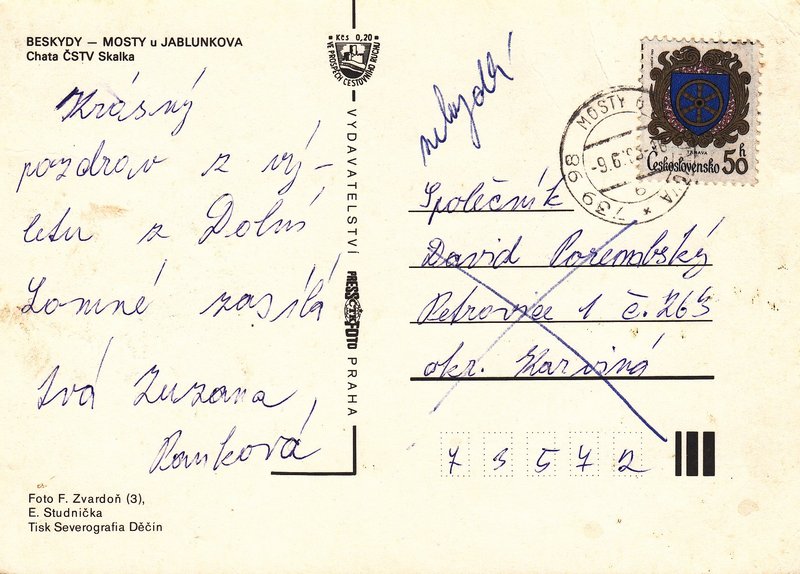 BESKYDY — MOSTY u JABLUNKOVA
Chata ČSTV Skalka
Krásný
pozdrav z vý-
letu z Dolní
Lomné zasílá
tvá Zuzana
Kčs 0,20
VE PROSPĚCH CESTOVNÍHO RUCHU
VYDAVATELSTVÍ PRESSFOTO PRAHA
TRNAVA
Československo 50 h
MOSTY U
-9.6.83-16
739 98
Společník
David Porembský
Petrovice 1 č. 263
okr. Karviná
7 3 5 7 2
Foto F. Zvardoň (3),
E. Studnička
Tisk Severografia Děčín